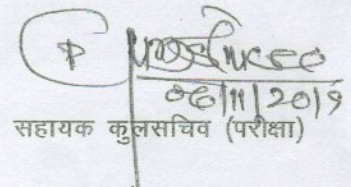 06/11/2019
सहायक कुलसचिव (परीक्षा)